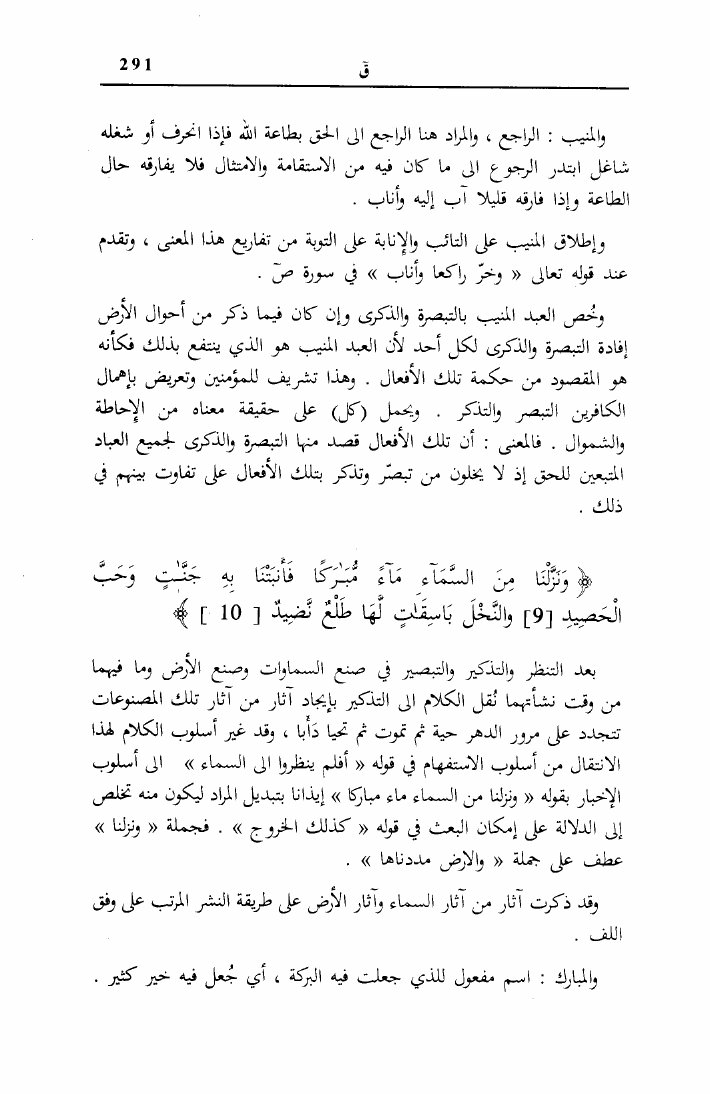 291
قٓ
والمنيب : الراجع ، والمراد هنا الراجع الى الحق بطاعة الله فإذا انحرف أو شغله
شاغل ابتدر الرجوع الى ما كان فيه من الاستقامة والامتثال فلا يفارقه حال
الطاعة وإذا فارقه قليلا آب إليه وأناب .
وإطلاق المنيب على التائب والإنابة على التوبة من تفاريع هذا المعنى ، وتقدم
عند قوله تعالى « وخرّ راكعا وأناب » في سورة صٓ .
وخُص العبد المنيب بالتبصرة والذكرى وإن كان فيما ذكر من أحوال الأرض
إفادة التبصرة والذكرى لكل أحد لأن العبد المنيب هو الذي ينتفع بذلك فكأنه
هو المقصود من حكمة تلك الأفعال . وهذا تشريف للمؤمنين وتعريض بإهمال
الكافرين التبصر والتذكر . ويحمل (كل) على حقيقة معناه من الإحاطة
والشموال . فالمعنى : أن تلك الأفعال قصد منها التبصرة والذكرى لجميع العباد
المتبعين للحق إذ لا يخلون من تبصّر وتذكر بتلك الأفعال على تفاوت بينهم في
ذلك .
﴿ وَنَزَّلْنَا مِنَ السَّمَآءِ مَآءً مُّبَـٰرَكًا فَأَنبَتْنَا بِهِ جَنَّـٰتٍ وَحَبَّ
الْحَصِيدِ [9] والنَّخْلَ بَاسِقَـٰتٍ لَّهَا طَلْعٌ نَّضِيدٌ [ 10 ] ﴾
بعد التنظر والتذكير والتبصير في صنع السماوات وصنع الأرض وما فيهما
من وقت نشأتهما نُقل الكلام الى التذكير بإيجاد آثار من آثار تلك المصنوعات
تتجدد على مرور الدهر حية ثم تموت ثم تحيا دَأبا ، وقد غير أسلوب الكلام لهذا
الانتقال من أسلوب الاستفهام في قوله « أفلم ينظروا الى السماء » الى أسلوب
الإخبار بقوله « ونزلنا من السماء ماء مباركا » إيذانا بتبديل المراد ليكون منه تخلص
إلى الدلالة على إمكان البعث في قوله « كذلك الخروج » . فجملة « ونزلنا »
عطف على جملة « والارض مددناها » .
وقد ذكرت آثار من آثار السماء وآثار الأرض على طريقة النشر المرتب على وفق
اللف .
والمبارك : اسم مفعول للذي جعلت فيه البركة ، أي جُعل فيه خير كثير .